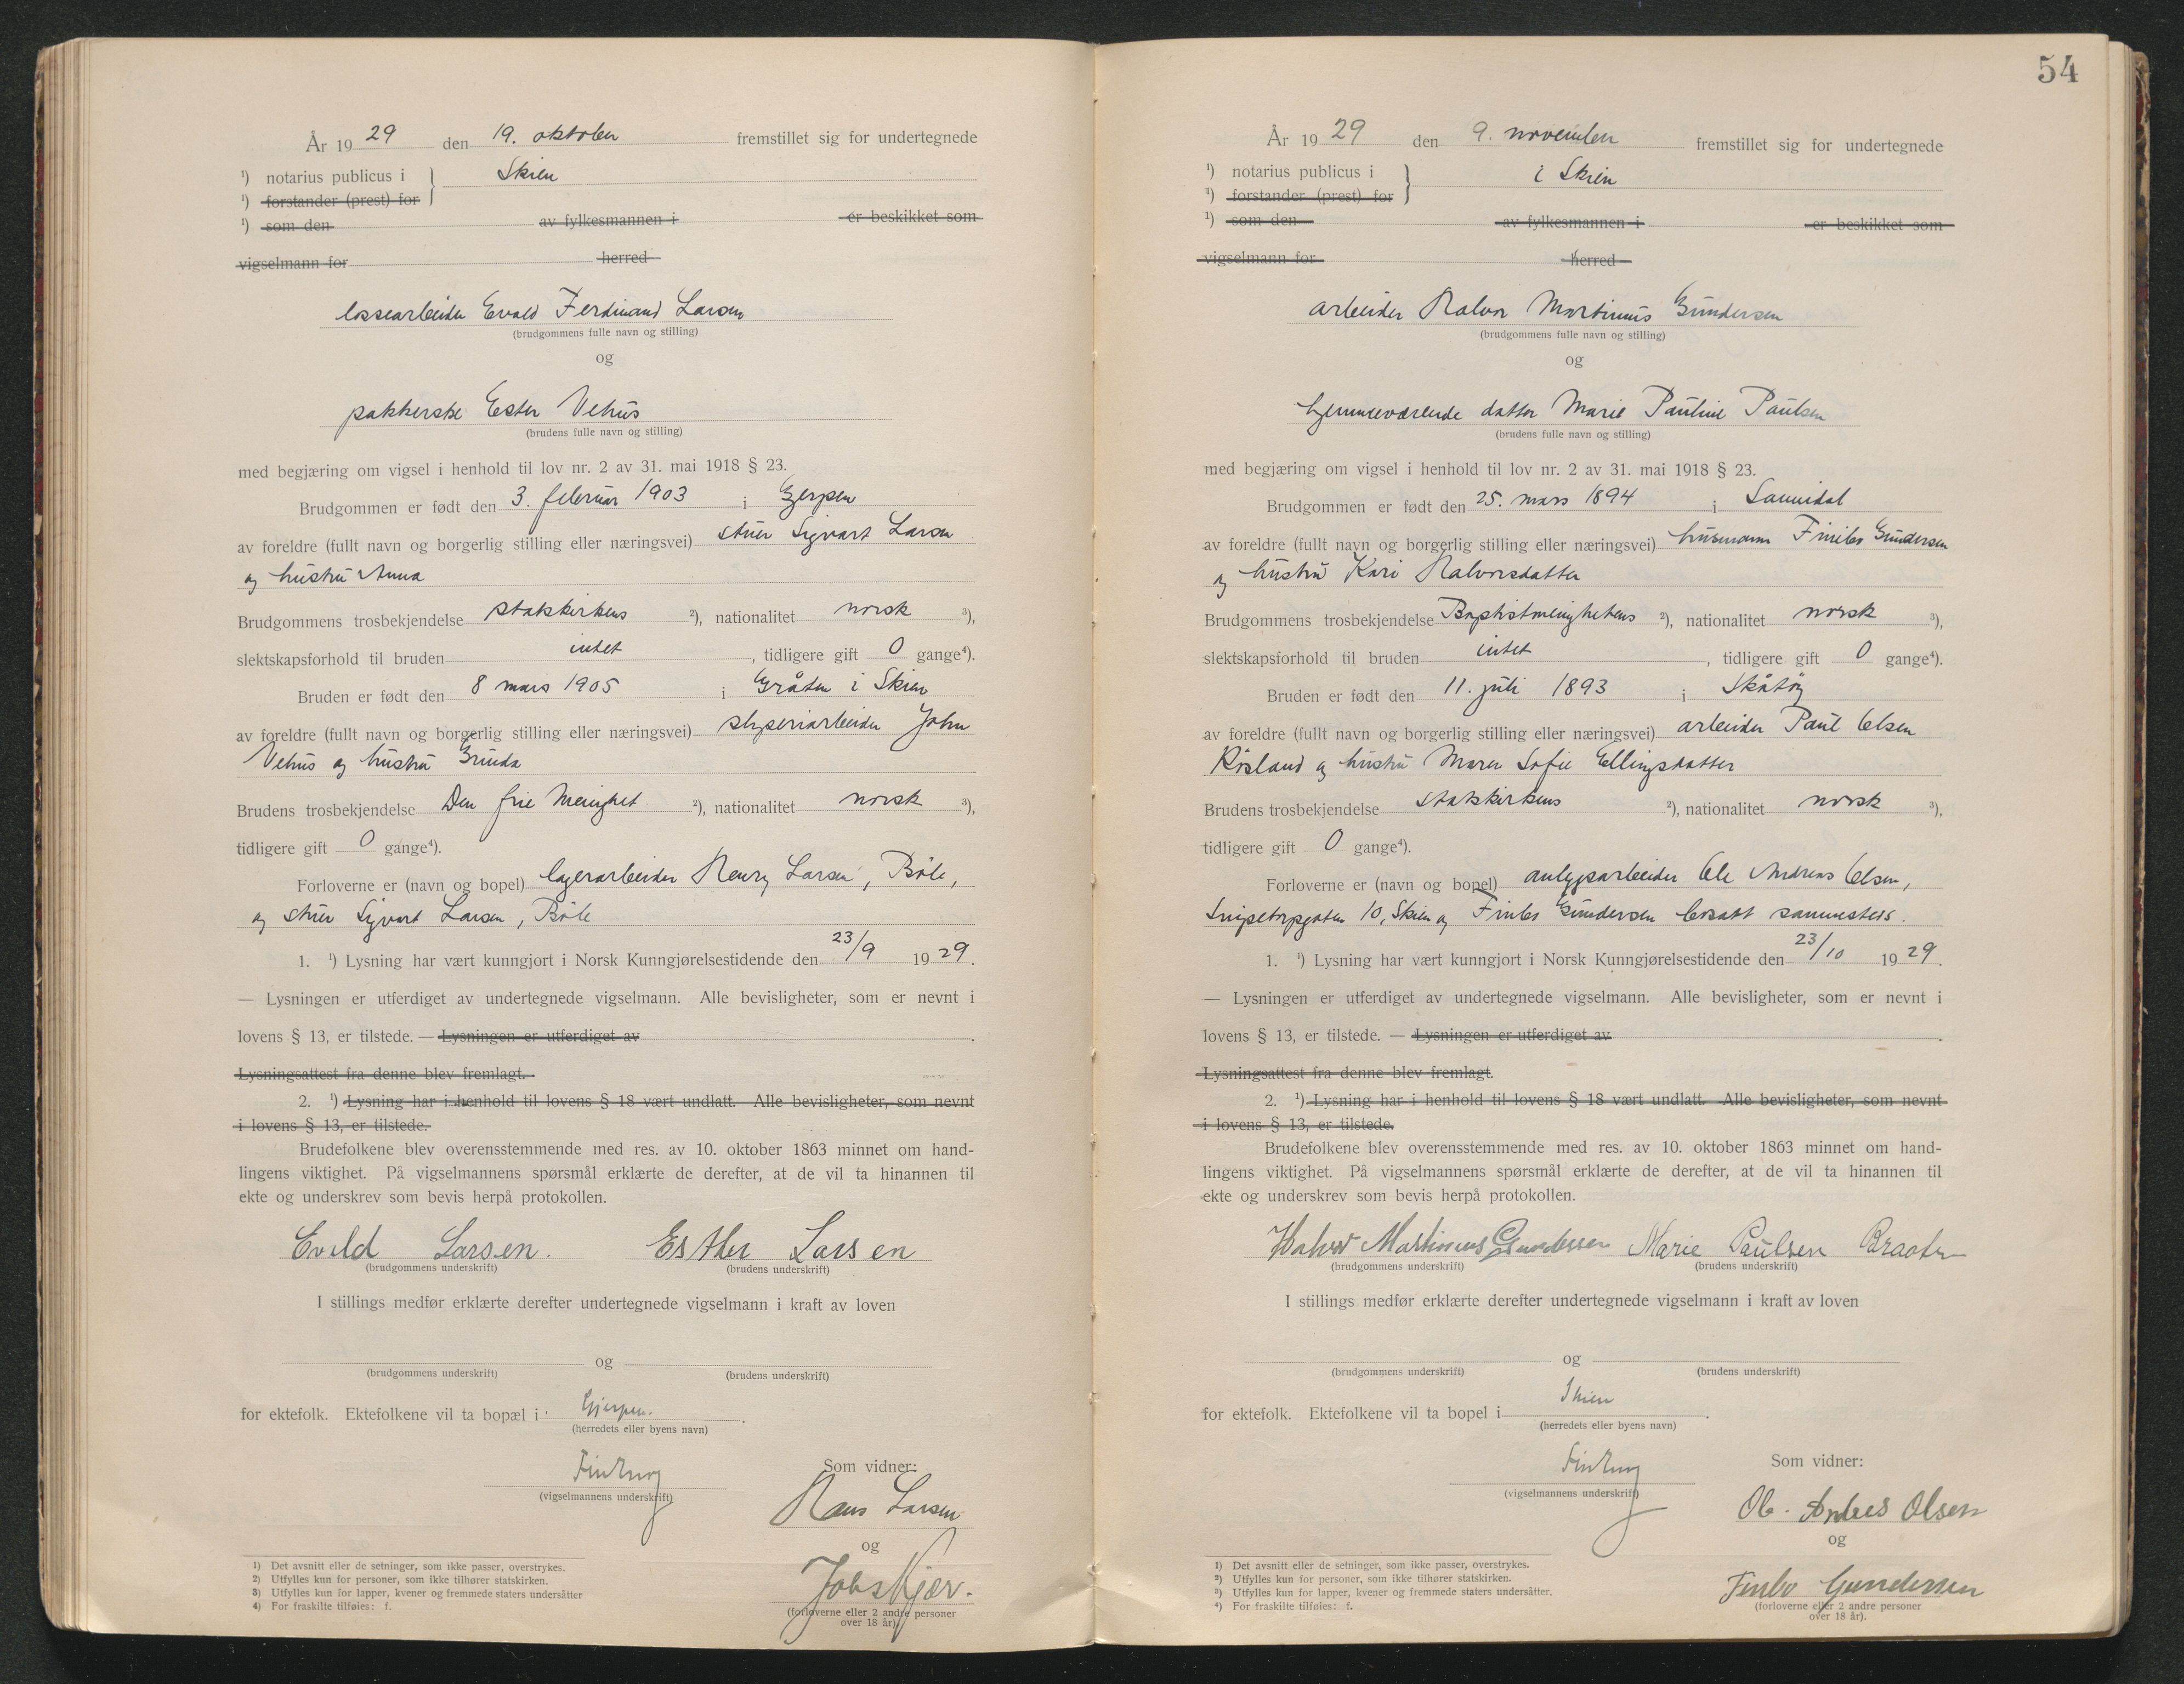 År 1929 den 19. oktober fremstillet sig for undertegnede
¹) notarius publicus i } Skien
¹) forstander (prest) for
¹) som den av fylkesmannen i er beskikket som
vigselmann for herred
lossearbeider Evald Ferdinand Larsen
(brudgommens fulle navn og stilling)
og
pakkerske Ester Vehus
(brudens fulle navn og stilling)
med begjæring om vigsel i henhold til lov nr. 2 av 31. mai 1918 § 23.
Brudgommen er født den 3. februar 1903 i Gjerpen
av foreldre (fullt navn og borgerlig stilling eller næringsvei) stuer Sigvart Larsen
og hustru Anna
Brudgommens trosbekjendelse statskirkens ²), nationalitet norsk ³),
slektskapsforhold til bruden intet, tidligere gift 0 gange⁴).
Bruden er født den 8 mars 1905 i Gråten i Skien
av foreldre (fullt navn og borgerlig stilling eller næringsvei) sliperiarbeider John
Vehus og hustru Gunda
Brudens trosbekjendelse Den frie Menighet ²), nationalitet norsk ³),
tidligere gift 0 gange⁴).
Forloverne er (navn og bopel) lagerarbeider Henry Larsen, Bøle,
og stuer Sigvart Larsen, Bøle
1. ¹) Lysning har vært kunngjort i Norsk Kunngjørelsestidende den 23/9 1929.
— Lysningen er utferdiget av undertegnede vigselmann. Alle bevisligheter, som er nevnt i
lovens § 13, er tilstede. — Lysningen er utferdiget av .
Lysningsattest fra denne blev fremlagt.
2. ¹) Lysning har i henhold til lovens § 18 vært undlatt. Alle bevisligheter, som nevnt
i lovens § 13, er tilstede.
Brudefolkene blev overensstemmende med res. av 10. oktober 1863 minnet om hand-
lingens viktighet. På vigselmannens spørsmål erklærte de derefter, at de vil ta hinannen til
ekte og underskrev som bevis herpå protokollen.
Evald Larsen. Esther Larsen
(brudgommens underskrift) (brudens underskrift)
I stillings medfør erklærte derefter undertegnede vigselmann i kraft av loven
og
(brudgommens underskrift) (brudens underskrift)
for ektefolk. Ektefolkene vil ta bopæl i Gjerpen.
(herredets eller byens navn)
Som vidner:
(vigselmannens underskrift)
Hans Larsen
og
(forloverne eller 2 andre personer
over 18 år).
¹) Det avsnitt eller de setninger, som ikke passer, overstrykes.
²) Utfylles kun for personer, som ikke tilhører statskirken.
³) Utfylles kun for lapper, kvener og fremmede staters undersåtter
⁴) For fraskilte tilføies: f.
54
År 1929 den 9. november fremstillet sig for undertegnede
¹) notarius publicus i } i Skien
¹) forstander (prest) for
¹) som den av fylkesmannen i er beskikket som
vigselmann for herred
arbeider Halvor Martinius Gundersen
(brudgommens fulle navn og stilling)
og
hjemmeværende datter Marie Pauline Paulsen
(brudens fulle navn og stilling)
med begjæring om vigsel i henhold til lov nr. 2 av 31. mai 1918 § 23.
Brudgommen er født den 25. mars 1894 i Sannidal
av foreldre (fullt navn og borgerlig stilling eller næringsvei) husmann Finbo Gundersen
og hustru Kari Halvorsdatter
Brudgommens trosbekjendelse Baptistmenighetens ²), nationalitet norsk ³),
slektskapsforhold til bruden intet, tidligere gift 0 gange⁴).
Bruden er født den 11. juli 1893 i Skåtøy
av foreldre (fullt navn og borgerlig stilling eller næringsvei) arbeider Paul Olsen
Røsland og hustru Maren Sofie Ellingsdatter
Brudens trosbekjendelse statskirkens ²), nationalitet norsk ³),
tidligere gift 0 gange⁴).
Forloverne er (navn og bopel) anleggsarbeider Ole Andreas Olsen,
Snipetorpgaten 10, Skien og Finbo Gundersen bosatt sammesteds.
1. ¹) Lysning har vært kunngjort i Norsk Kunngjørelsestidende den 23/10 1929.
— Lysningen er utferdiget av undertegnede vigselmann. Alle bevisligheter, som er nevnt i
lovens § 13, er tilstede. — Lysningen er utferdiget av .
Lysningsattest fra denne blev fremlagt.
2. ¹) Lysning har i henhold til lovens § 18 vært undlatt. Alle bevisligheter, som nevnt
i lovens § 13, er tilstede.
Brudefolkene blev overensstemmende med res. av 10. oktober 1863 minnet om hand-
lingens viktighet. På vigselmannens spørsmål erklærte de derefter, at de vil ta hinannen til
ekte og underskrev som bevis herpå protokollen.
Halvor Martinius Gundersen Marie Paulsen Braaten
(brudgommens underskrift) (brudens underskrift)
I stillings medfør erklærte derefter undertegnede vigselmann i kraft av loven
og
(brudgommens underskrift) (brudens underskrift)
for ektefolk. Ektefolkene vil ta bopel i Skien.
(herredets eller byens navn)
Som vidner:
(vigselmannens underskrift)
Ole Andreas Olsen
og
Finbo Gundersen
(forloverne eller 2 andre personer
over 18 år).
¹) Det avsnitt eller de setninger, som ikke passer, overstrykes.
²) Utfylles kun for personer, som ikke tilhører statskirken.
³) Utfylles kun for lapper, kvener og fremmede staters undersåtter.
⁴) For fraskilte tilføies: f.